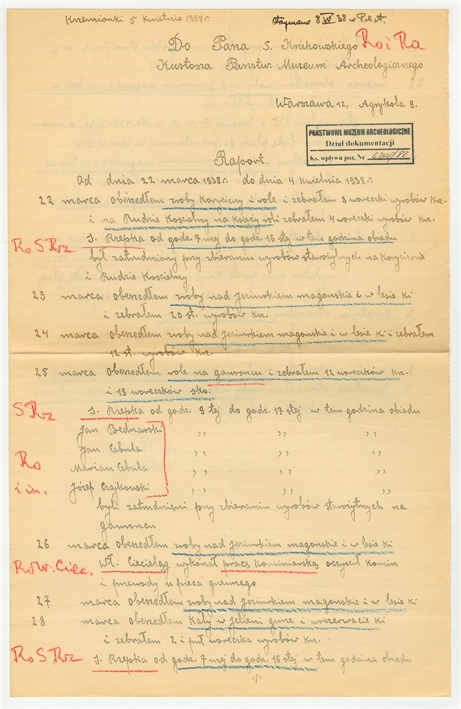 Krzemionki 5 kwietnia 1938 r.
8 IV 38 w P.M.A.
Do Pana S. Krukowskiego Ro i Ra
Kustosza Państw. Muzeum Archeologicznego
Warszawa 12, Agrykola 8.
PAŃSTWOWE MUZEUM ARCHEOLOGICZNE
Dział dokumentacji
ks. wpływu poz. Nr
Raport.
Od dnia 22 marca 1938 r. do dnia 4 kwietnia 1938 r.
22 marca obeszedłem zroby Korycizny i role i zebrałem 3 woreczki wyrobów krz.
i na Rudzie Kościelny na księży roli zebrałem 4 woreczki wyrobów krz.
Ro S Rz
S. Rzepka od godz. 7 mej do godz. 16 stej w tem godzina obiadu
był zatrudniony przy zbieraniu wyrobów starożytnych na Koryciznie
i Rudzie Kościelny
23 marca obeszedłem zroby nad jeziurkiem magonskie i w lesie ki
i zebrałem 20 st. wyrobów krz.
24 marca obeszedłem zroby nad jeziurkiem magonskie i w lesie ki i zebrałem
12 st. wyrobów krz.
25 marca obeszedłem role na gawroncu i zebrałem 12 woreczków krz.
i 13 woreczków sko.
S Rz
S. Rzepka od godz. 9 tej do godz. 17 stej w tem godzina obiadu
Jan Bednarski ,, ,, ,,
Jan Cebula ,, ,, ,,
Ro
Marian Cebula ,, ,, ,,
i in.
Józef Czajkowski ,, ,, ,,
byli zatrudnieni przy zbieraniu wyrobów starożytnych na
gawroncu
26 marca obeszedłem zroby nad jeziurkiem magonskie i w lesie ki
Ro W. Ciec.
Wł. Ciecieląg wykonał pracę kominiarską oczyscił komin
i przewody u pieca grzewnego
27 marca obeszedłem zroby nad jeziurkiem magonski i w lesie ki
28 marca obeszedłem Kały w Jeleni gurze i w rezerwacie ki
i zebrałem 2 i puł woreczka wyrobów krz.
Ro S Rz
S. Rzepka od godz. 7 mej do godz. 16 stej w tem godzina obiadu
./.